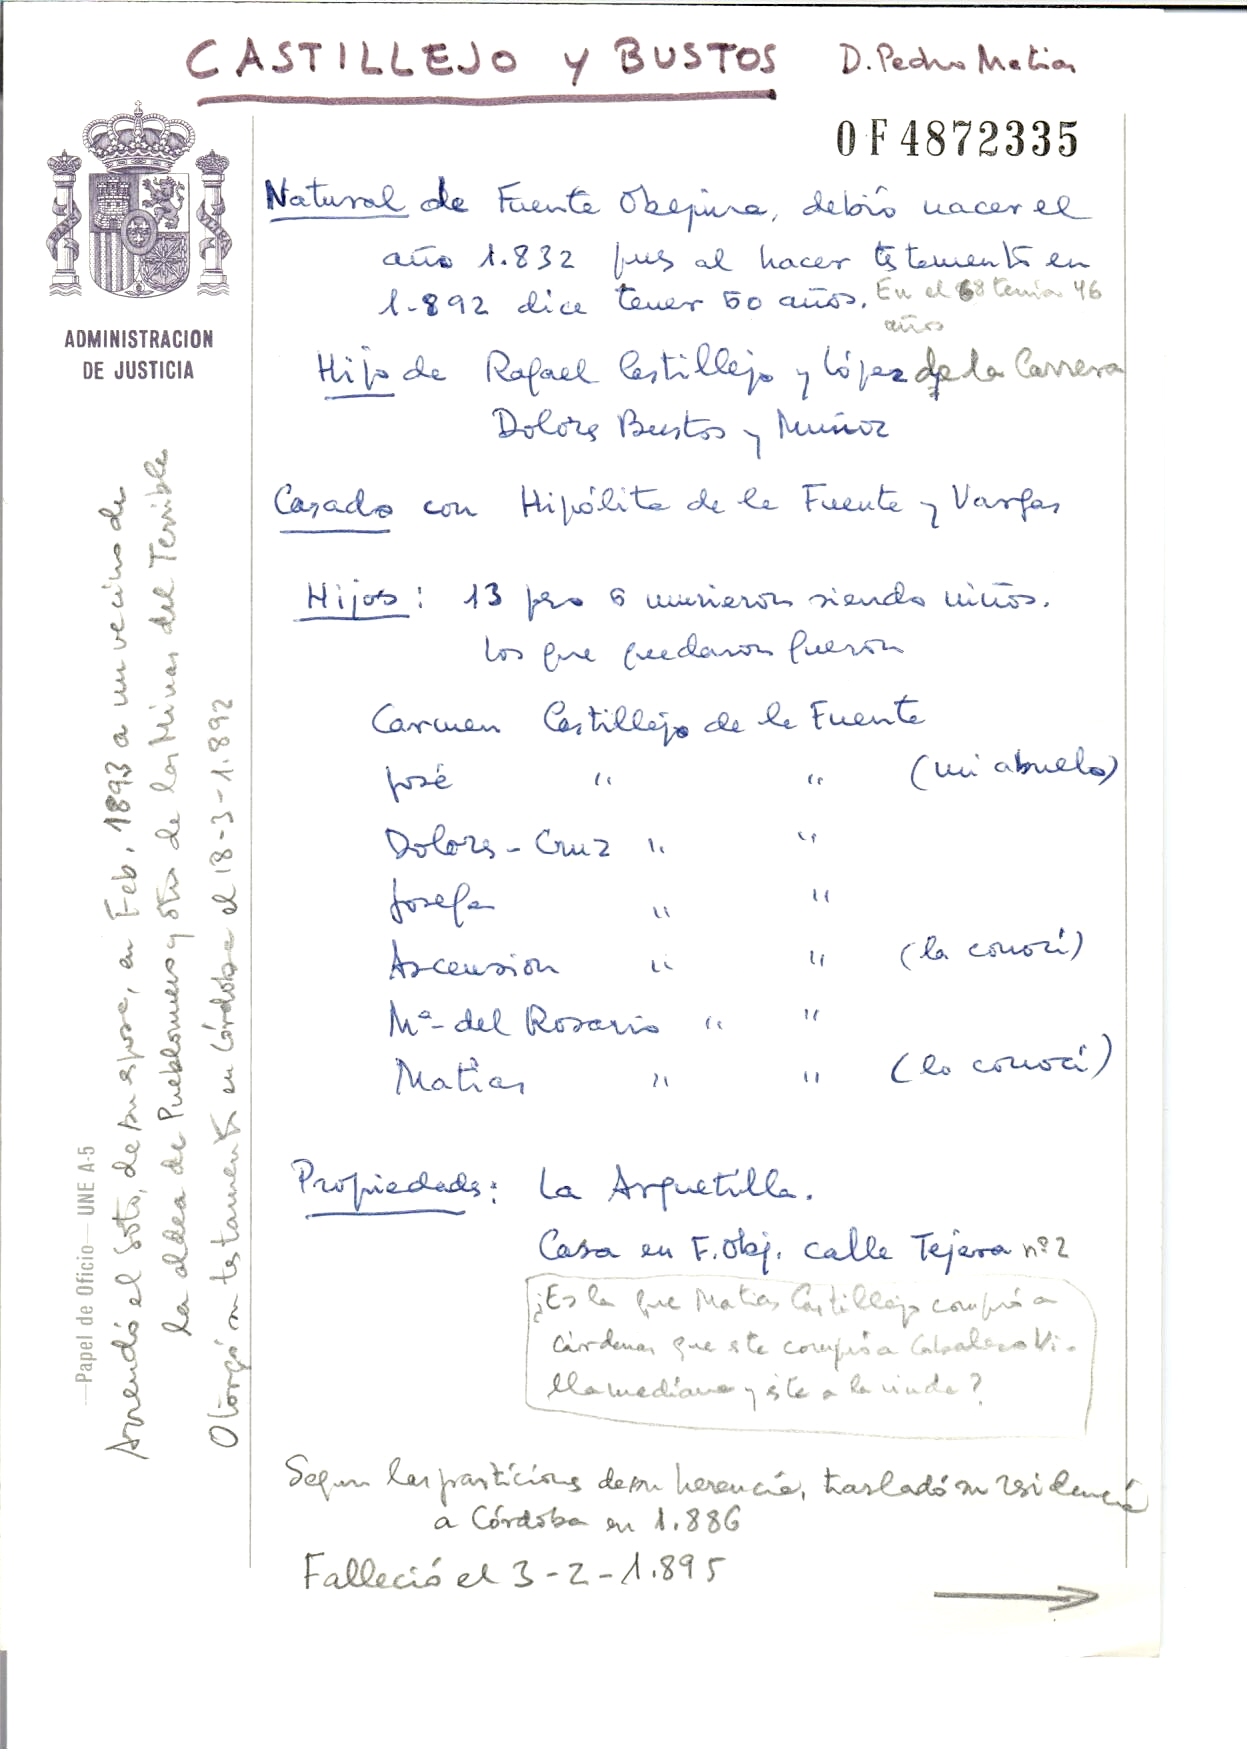 CASTILLEJO y BUSTOS D. Pedro Matias
0F4872335
ADMINISTRACION
DE JUSTICIA
Natural de Fuente Obejuna, debió nacer el
año 1.832 pues al hacer testamento en
1.892 dice tener 60 años. En el 68 tenia 46
años
Hijo de Rafael Castillejo y López de la Carrera
Dolores Bustos y Muñoz
Casado con Hipólita de la Fuente y Vargas
Hijos: 13 pero 6 murieron siendo niños.
Los que quedaron fueron
Carmen Castillejo de la Fuente
José " " (mi abuelo)
Dolores - Cruz " "
Josefa " "
Ascension " " (la conocí)
Mª del Rosario " "
Matias " " (lo conocí)
Propiedades: La Arquetilla.
Casa en F. Obj. calle Tejera nº 2
¿Es la que Matias Castillejo compró a
Cárdenas que este compró a Caballero Vi-
llamediana y éste a la viuda?
Segun las particiones de su herencia, trasladó su residencia
a Córdoba en 1.886
Falleció el 3-2-1.895
Arrendó el Soto, de su esposa, en Feb. 1893 a un vecino de
la aldea de Pueblonuevo y otro de las Minas del Terrible
Otorgó su testamento en Córdoba el 18-3-1.892
Papel de Oficio — UNE A-5